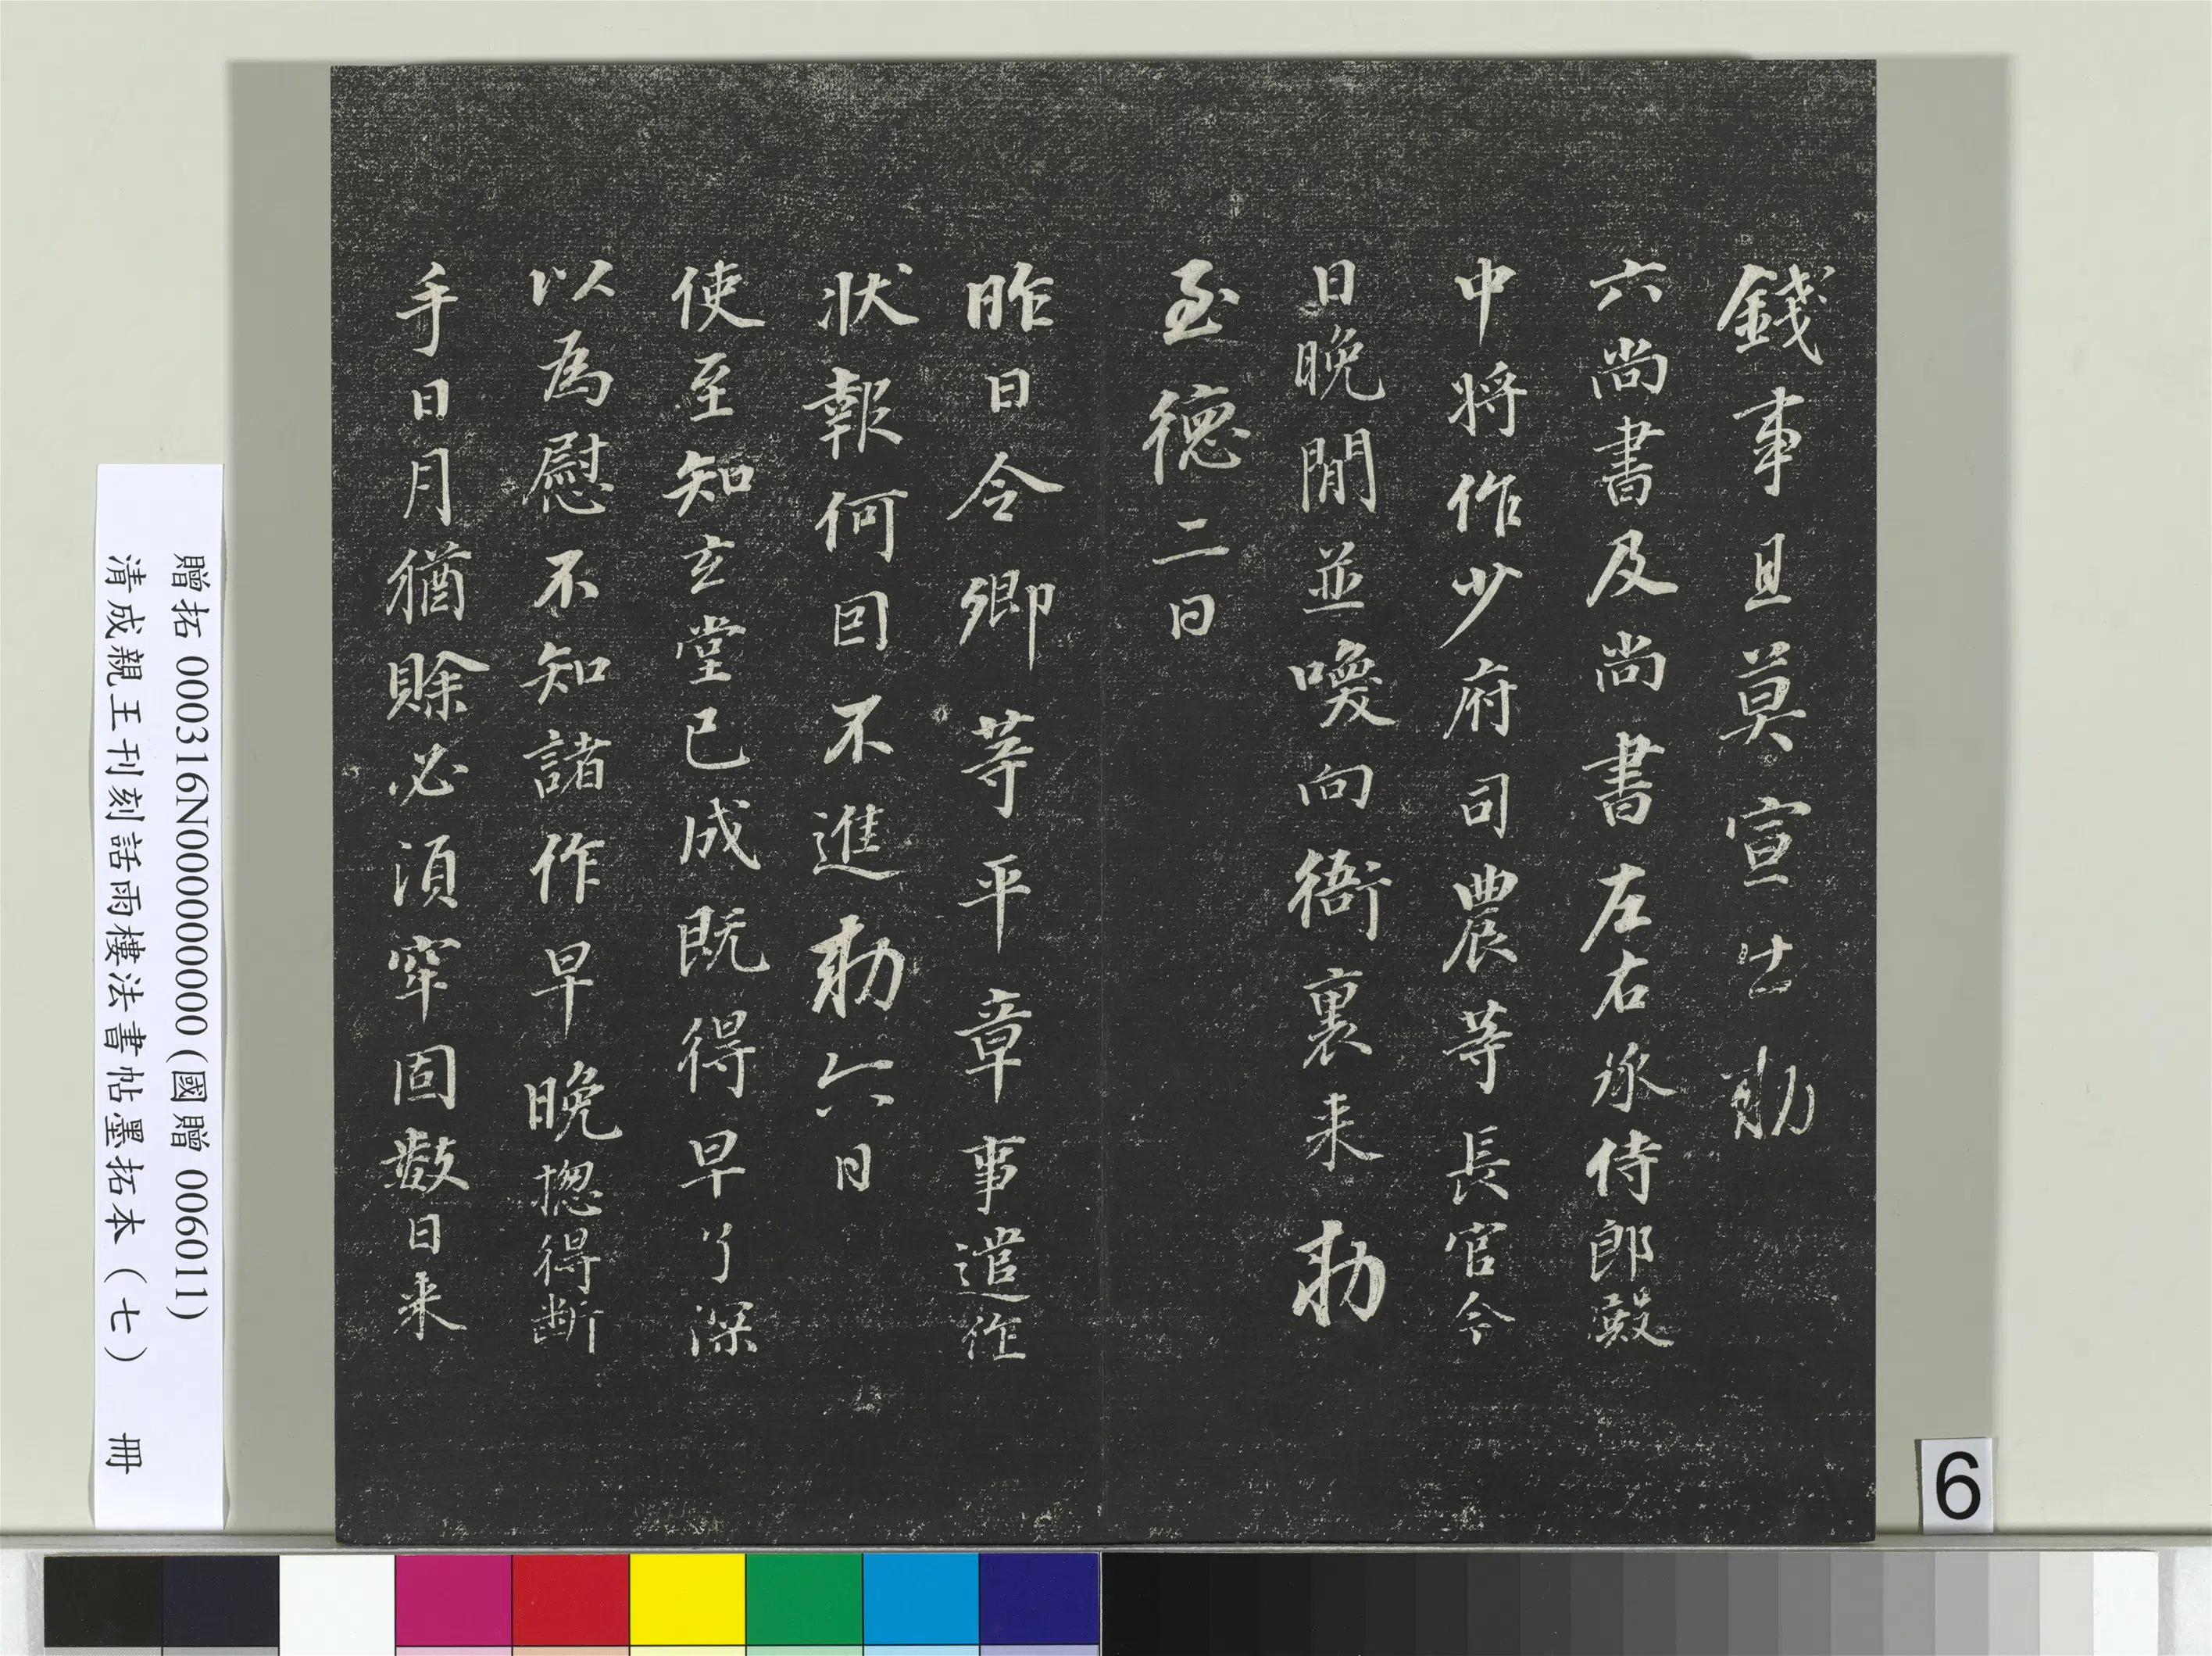 錢事且莫宣出勅
六尚書及尚書左右丞侍郎殿
中將作少府司農等長官今
日晚閒並喚向衙裏来勅
至德二日
昨日令卿等平章事遣作
狀報何因不進勅六日
使至知玄堂已成既得早了深
以為慰不知諸作早晚揔得断
手日月猶賒必須牢固數日来
贈拓 000316N000000000 (國贈 006011)
清成親王刊刻詒雨樓法書帖墨拓本（七） 冊
6